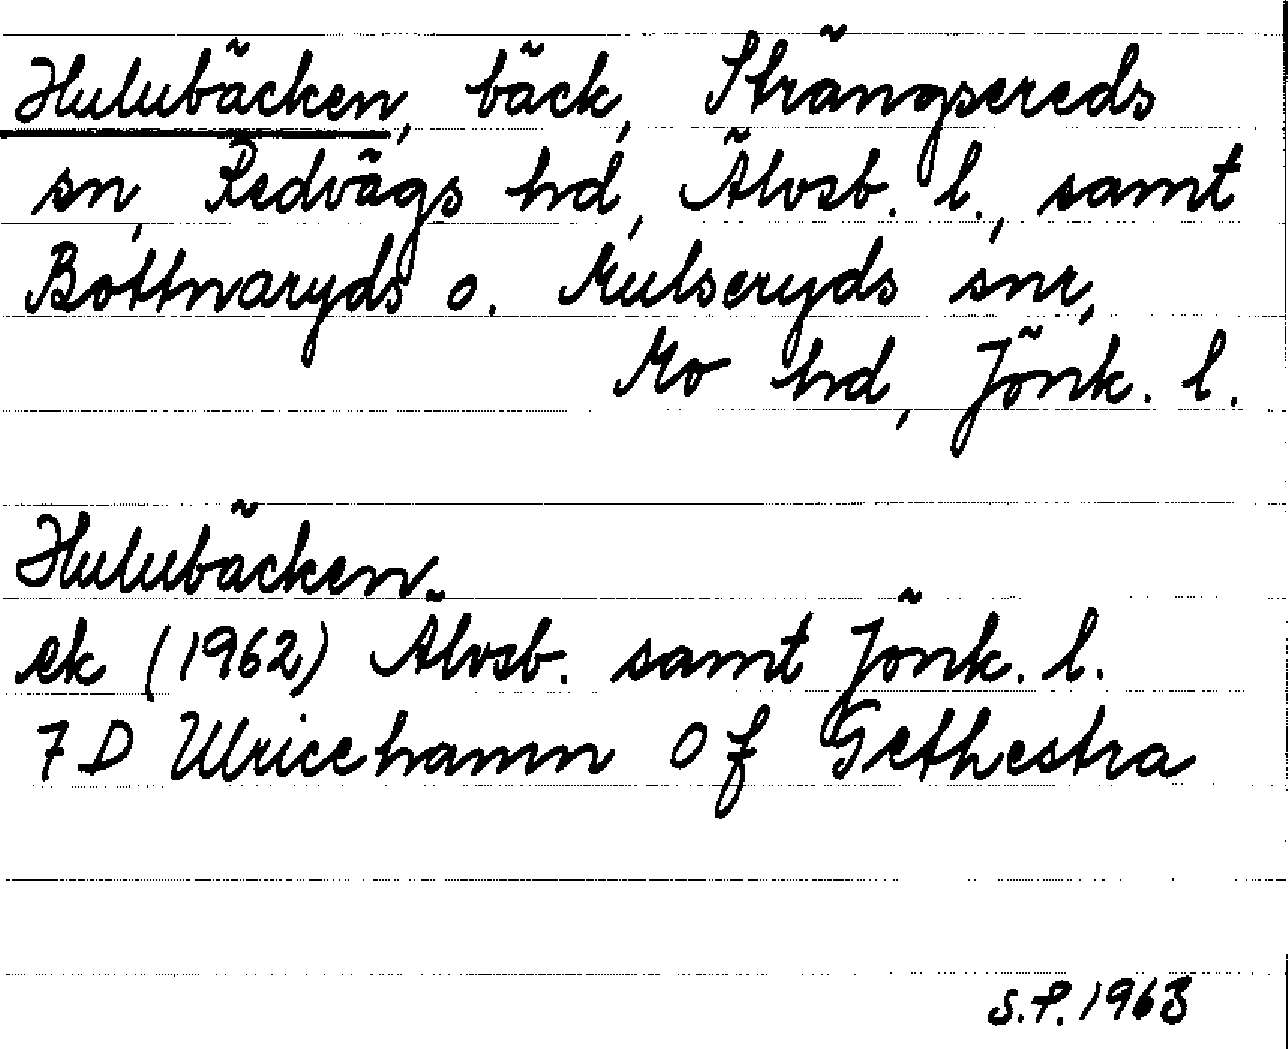 Hulubäcken, bäck, Strängsereds
sn, Redvägs hd, Älvsb. l., samt
Bottnaryds o. Mulseryds snr,
Mo hd, Jönk. l.
Hulubäcken
ek (1962) Älvsb. samt Jönk. l.
7 D Ulricehamn 0 f Grthestra
S.P. 1963